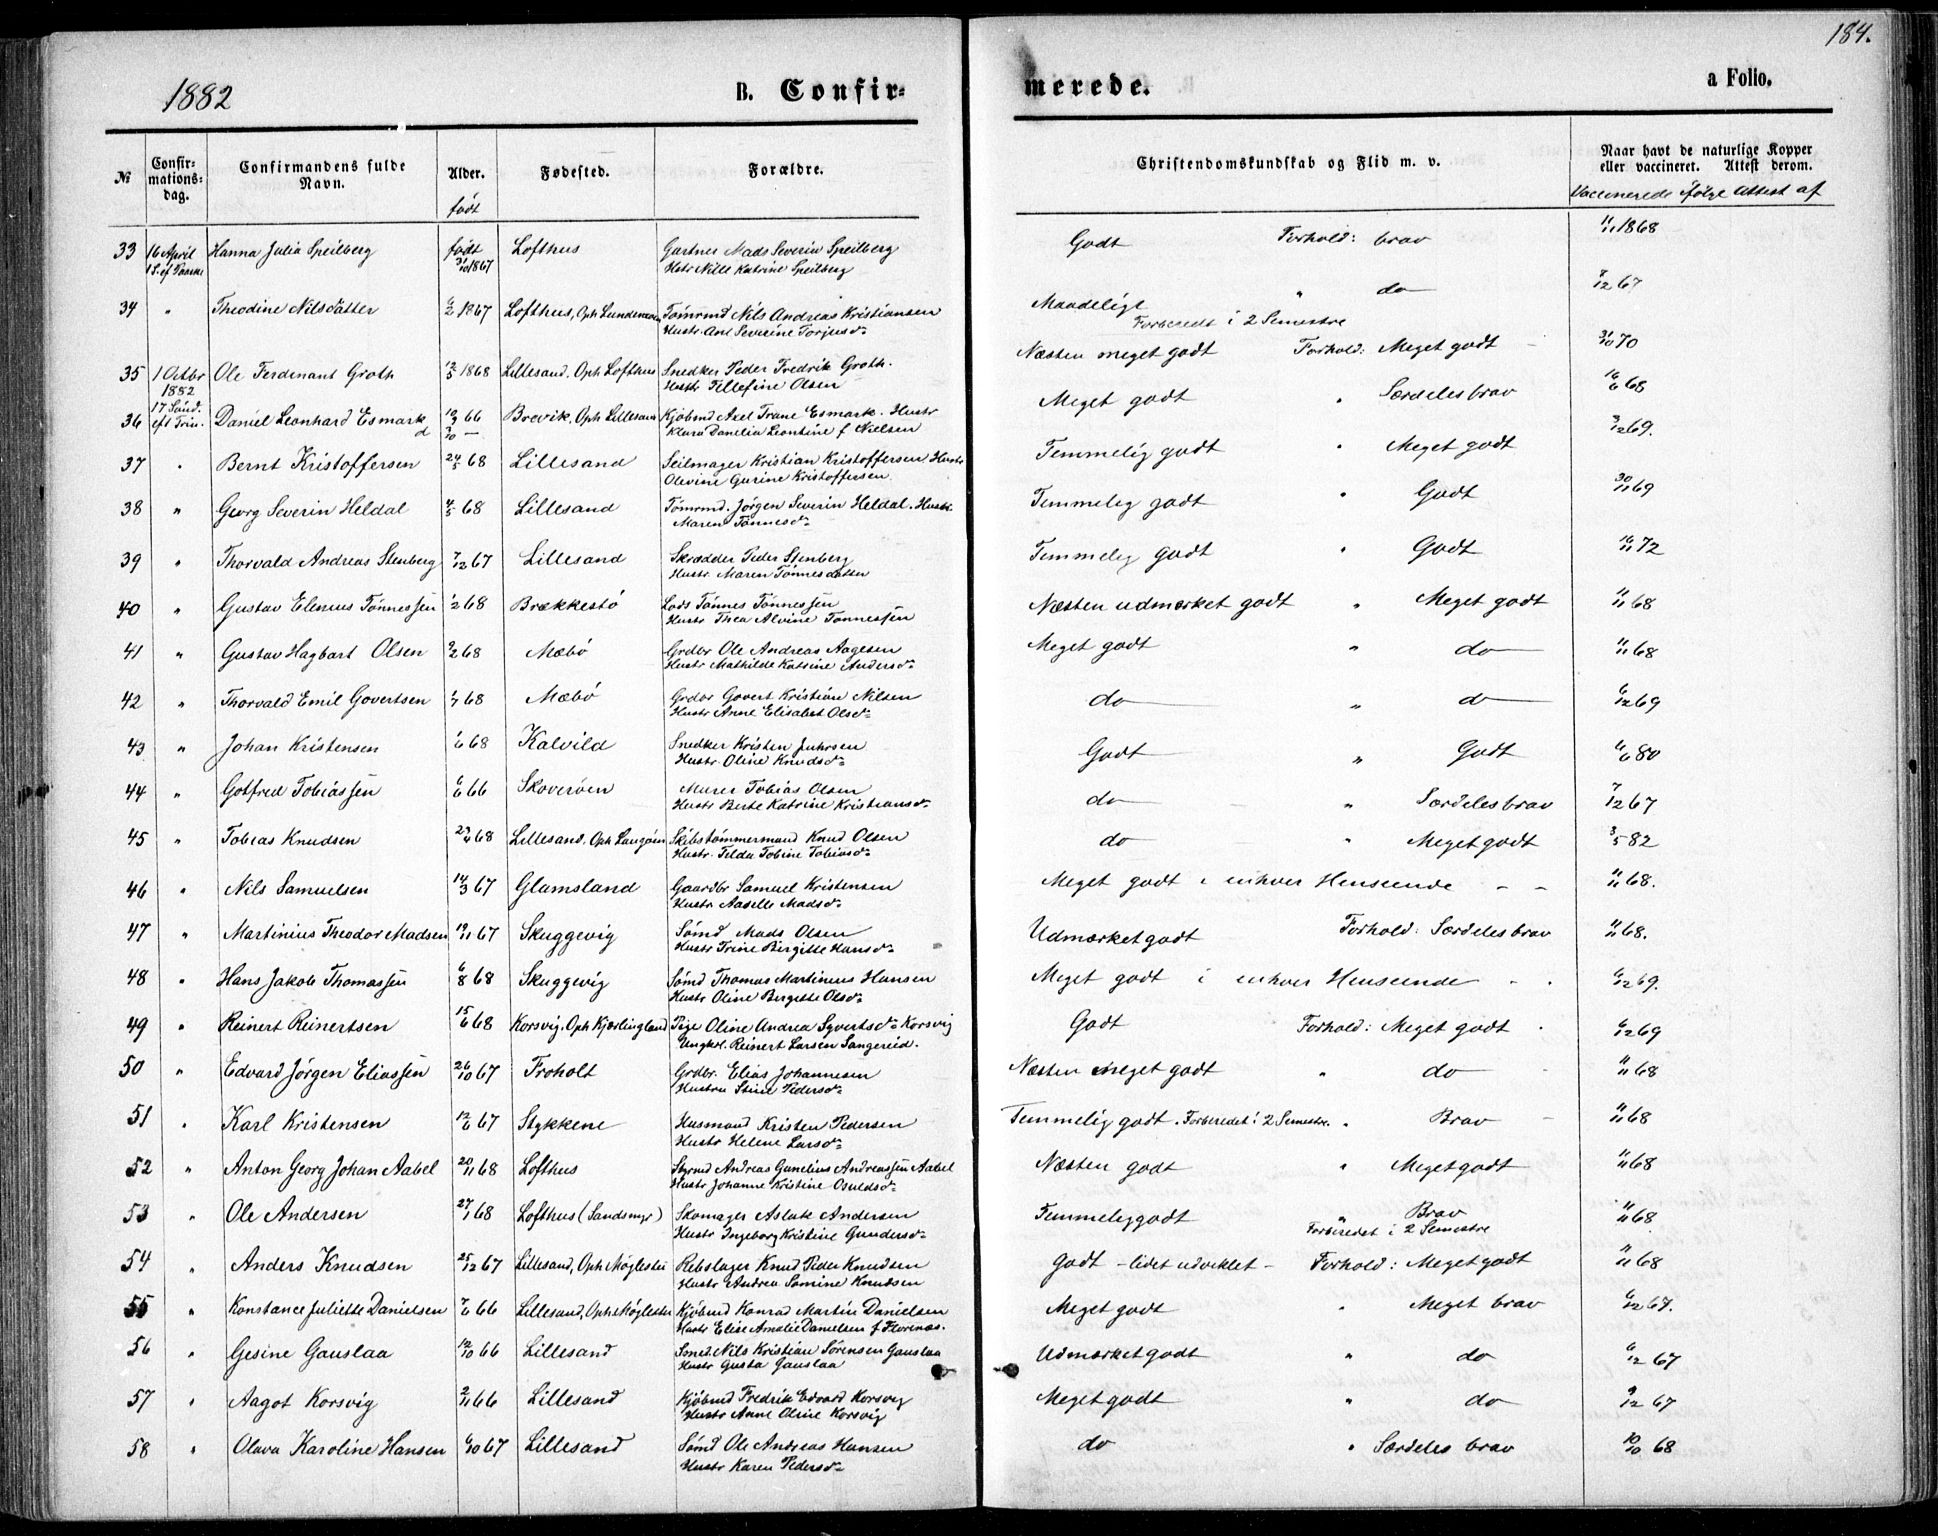 184.
1882 B. Confirmerede. a Folio.
№ Confirmationsdag. Confirmandens fulde Navn. Alder. Fødested. Forældre. Christendomskundskab og Flid m. v. Naar havt de naturlige Kopper eller vaccineret. Attest derom.
født Vaccinerede ifølge Attest af
33 16 April Hanna Julia Speilberg født Lofthus Gartner Mads Severin Speilberg Godt Forhold: brav 11/11 1868
1 S. ef Paaske 31/10 1867 Hstr Nille Katrine Speilberg
34 " Theodine Nilsdatter 6/2 1867 Lofthus, Oph Lundemoen Tømrmd Nils Andreas Kristiansen Maadeligt " do 7/12 67
Hustr. Axl Severine Torjusd. Forberedt i 2 Semestre
35 1 Octbr Ole Ferdinant Groth 12/5 1868 Lillesand. Oph Lofthus Snedker Peder Fredrik Groth. Næsten meget godt Forhold: Meget godt 31/10 70
1882 Hustr Tellefine Olsen
17 Sønd.
36 eft Trin. Daniel Leonhard Esmark 10/9 66 Brevik, Oph Lillesand Kjøbmd Axel Trane Esmark. Hustr Meget godt " Særdeles brav 16/6 68
d 3/10 — Klara Danelia Leontine f Nielsen
37 " Bernt Kristoffersen 24/5 68 Lillesand Seilmager Kristian Kristoffersen Hustr Temmelig godt " Meget godt 3/12 69.
Olevine Gurine Kristoffersen
38 " Georg Severin Heldal 4/5 68 Lillesand Tømrmd. Jørgen Severin Heldal. Hustr. Temmelig godt " Godt 30/11 69
Maren Tønnesd.
39 " Thorvald Andreas Stenberg 7/12 67 Lillesand Skrædder Peder Stenberg Temmelig godt " Godt 16/11 72
Hustr. Maren Tønnesdatter
40 " Gustav Elenius Tønnessen 1/2 68 Brækkestø Lods Tønnes Tønnessen Næsten udmærket godt " Meget godt 11/11 68
Hustr Thea Alvine Tønnessen
41 " Gustav Hagbart Olsen 9/2 68 Mæbø Grdbr Ole Andreas Aagesen Meget godt " do 11/11 68
Hustr Mathilde Katrine Andersd.
42 " Thorvald Emil Govertsen 1/7 68 Mæbø Grdbr Govert Kristian Nilsen do " do 6/12 69
Hustr Anne Elisabet Olsd.
43 " Johan Kristensen 1/6 68 Kalvild Snedker Kristen Juhrsen Godt " Godt 6/6 80
Hustr. Oline Knudsd.
44 " Gotfred Tobiassen 6/6 66 Skoverøen Murer Tobias Olsen do " Særdeles brav 7/12 67
Hustr Berte Katrine Kristiansd.
45 " Tobias Knudsen 29/6 68 Lillesand. Oph Langøen Skibstømmermand Knud Olsen do " Meget godt 3/5 82
Hustr. Tilda Tobine Tobiasd.
46 " Nils Samuelsen 14/3 67 Glamsland Gaardbr Samuel Kristensen Meget godt i enhver Henseende 11/11 68.
Hustr Aaselle Madsd.
47 " Martinius Theodor Madsen 19/11 67 Skuggevig Sømd Mads Olsen Udmærket godt Forhold: Særdeles brav 11/11 68.
Hustr Trine Birgitte Hansd.
48 " Hans Jakob Thomassen 6/8 68 Skuggevig Sømd Thomas Martinus Hansen Meget godt i enhver Henseende 6/12 69.
Hustr Oline Bergette Olsd.
49 " Reinert Reinertsen 15/6 68 Korsvig. Oph Kjærlingland Pige Oline Andrea Syvertsd. Korsvig Godt Forhold: Meget godt 6/12 69
Ungkrl. Reinert Larsen Sangereid.
50 " Edvard Jørgen Eliassen 26/10 67 Froholt Grdbr. Elias Johannesen Næsten meget godt " do 11/11 68
Hustru Stine Pedersd.
51 " Karl Kristensen 12/6 67 Stykkene Husmand Kristen Pedersen Temmelig godt. Forberedet i 2 Semestre. " Brav 11/11 68
Hustr Helene Larsd.
52 " Anton Georg Johan Aabel 20/11 68 Lofthus Styrmd Andreas Gunelius Andreassen Aabel Næsten godt " Meget godt 11/11 68
Hustr Johanne Kristine Osuldsd.
53 " Ole Andersen 27/1 68 Lofthus (Sandsmyr) Skomager Aslak Andersen Temmelig godt " Brav 11/11 68
Hustr Ingeborg Kristine Gundersd. Forberedet i 2 Semestre
54 " Anders Knudsen 25/12 67 Lillesand, Oph Møglestu Rebslager Knud Peder Knudsen Godt - lidet udviklet - Forhold: Meget godt 11/11 68
Hustr Andrea Somine Knudsen
55 " Konstance Juliette Danielsen 7/6 66 Lillesand, Oph Møglestu Kjøbmd Konrad Martin Danielsen Meget godt " Meget brav 6/12 67.
Hustr Elise Amalie Danielsen f Florenæs.
56 " Gesine Gauslaa 12/10 66 Lillesand Smed Nils Kristian Sørensen Gauslaa Udmærket godt " do 6/12 67
Hustr Gusta Gauslaa
57 " Aagot Korsvig 2/11 66 Lillesand Kjøbmd Fredrik Edvard Korsvig Meget godt " do 9/12 67
Hustr Anne Oline Korsvig
58 " Olava Karoline Hansen 6/10 67 Lillesand Sømd Ole Andreas Hansen do " Særdeles brav 10/10 68
Hustr Karen Pedersd.